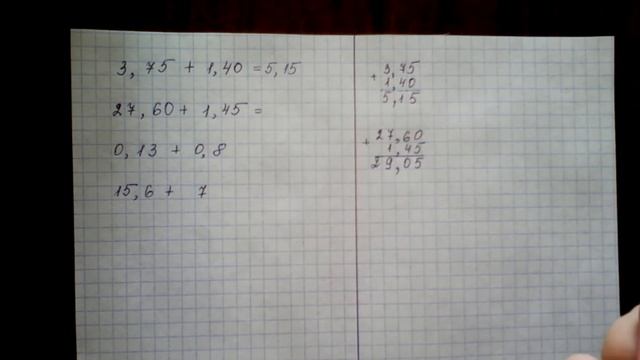 3,75 + 1,40 = 5,15
27,60 + 1,45 =
0,13 + 0,8
15,6 + 7
+ 3,75
1,40
5,15
+ 27,60
1,45
29,05